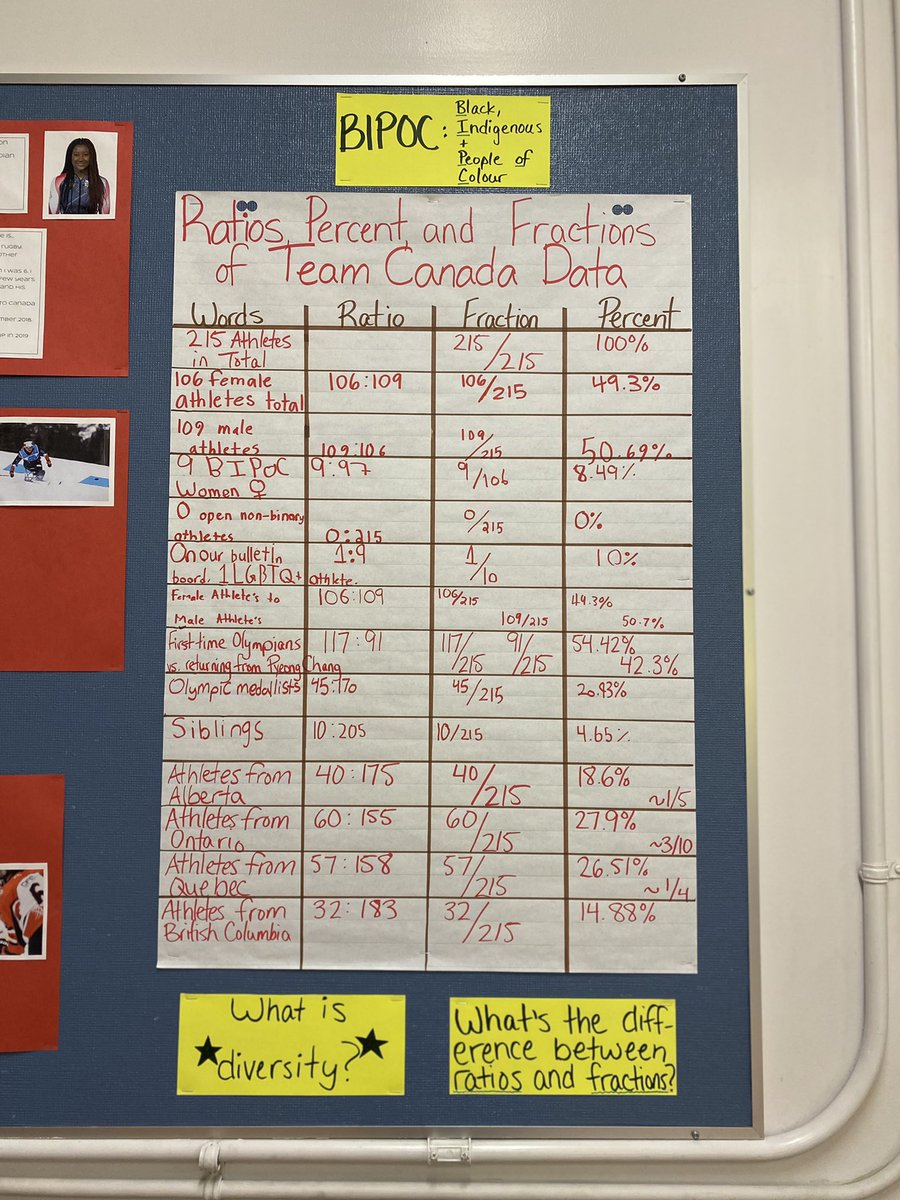 BIPOC: Black,
Indigenous
+
People of
Colour
Ratios, Percent, and Fractions
of Team Canada Data
Words Ratio Fraction Percent
215 Athletes
in Total 215/215 100%
106 female
athletes total 106:109 106/215 49.3%
109 male
athletes 109:106 109/215 50.69%
9 BIPOC
Women ♀ 9:97 9/106 8.49%
0 open non-binary
athletes 0:215 0/215 0%
On our bulletin
board. 1 LGBTQ+ athlete. 1:9 1/10 10%
Female Athlete's to
Male Athlete's 106:109 106/215 109/215 49.3% 50.7%
First time Olympians
vs. returning from PyeongChang 117:91 117/215 91/215 54.42% 42.3%
Olympic medallists 45:170 45/215 20.93%
Siblings 10:205 10/215 4.65%
Athletes from
Alberta 40:175 40/215 18.6% ~1/5
Athletes from
Ontario 60:155 60/215 27.9% ~3/10
Athletes from
Quebec 57:158 57/215 26.51% ~1/4
Athletes from
British Columbia 32:183 32/215 14.88%
What is
diversity?
What's the diff-
erence between
ratios and fractions?
rugby.
I was 6. I
few years
and his
to Canada
2018.
in 2019